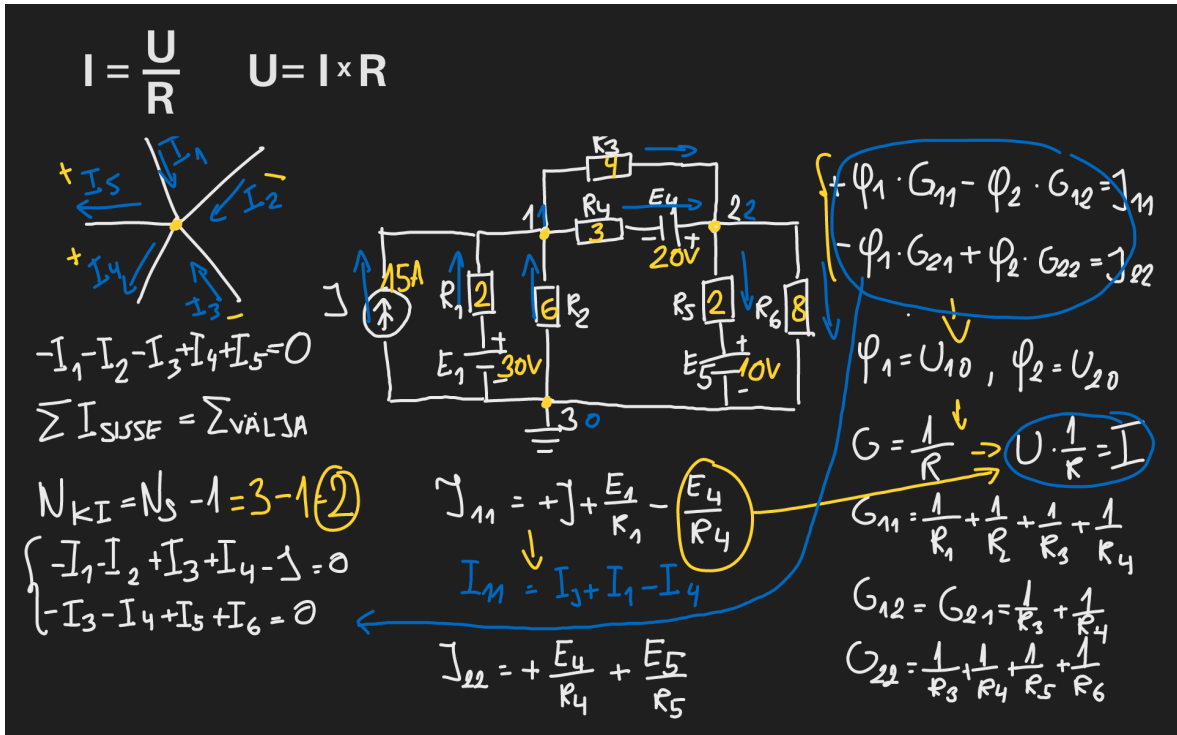 I = U/R    U = I × R
I1
+ I5
I2 -
+ I4
I3 -
-I1-I2-I3+I4+I5=0
∑ I SISSE = ∑ VÄLJA
N KI = NS -1 = 3-1=2
{ -I1-I2+I3+I4-J=0
-I3-I4+I5+I6=0
R3 4
R4 3 E4 - + 20V
1 1
2 2
J 15A
R1 2
6 R2
R5 2
R6 8
E1 + 30V -
E5 + 10V -
3 0
J11 = +J + E1/R1 - E4/R4
I11 = IJ + I1 - I4
J22 = + E4/R4 + E5/R5
{ +φ1 · G11 - φ2 · G12 = J11
-φ1 · G21 + φ2 · G22 = J22
φ1 = U10 , φ2 = U20
G = 1/R → U · 1/R = I
G11 = 1/R1 + 1/R2 + 1/R3 + 1/R4
G12 = G21 = 1/R3 + 1/R4
G22 = 1/R3 + 1/R4 + 1/R5 + 1/R6